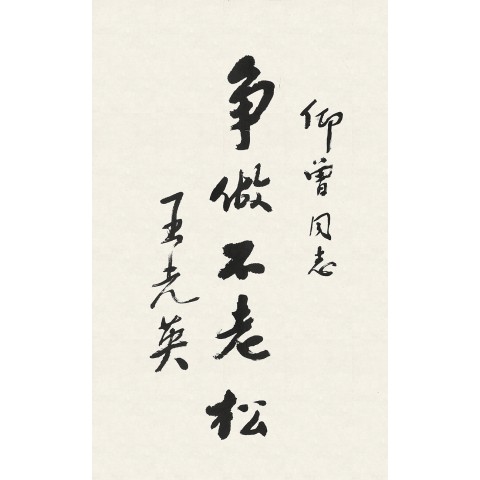 仰曾同志
争做不老松
王光英